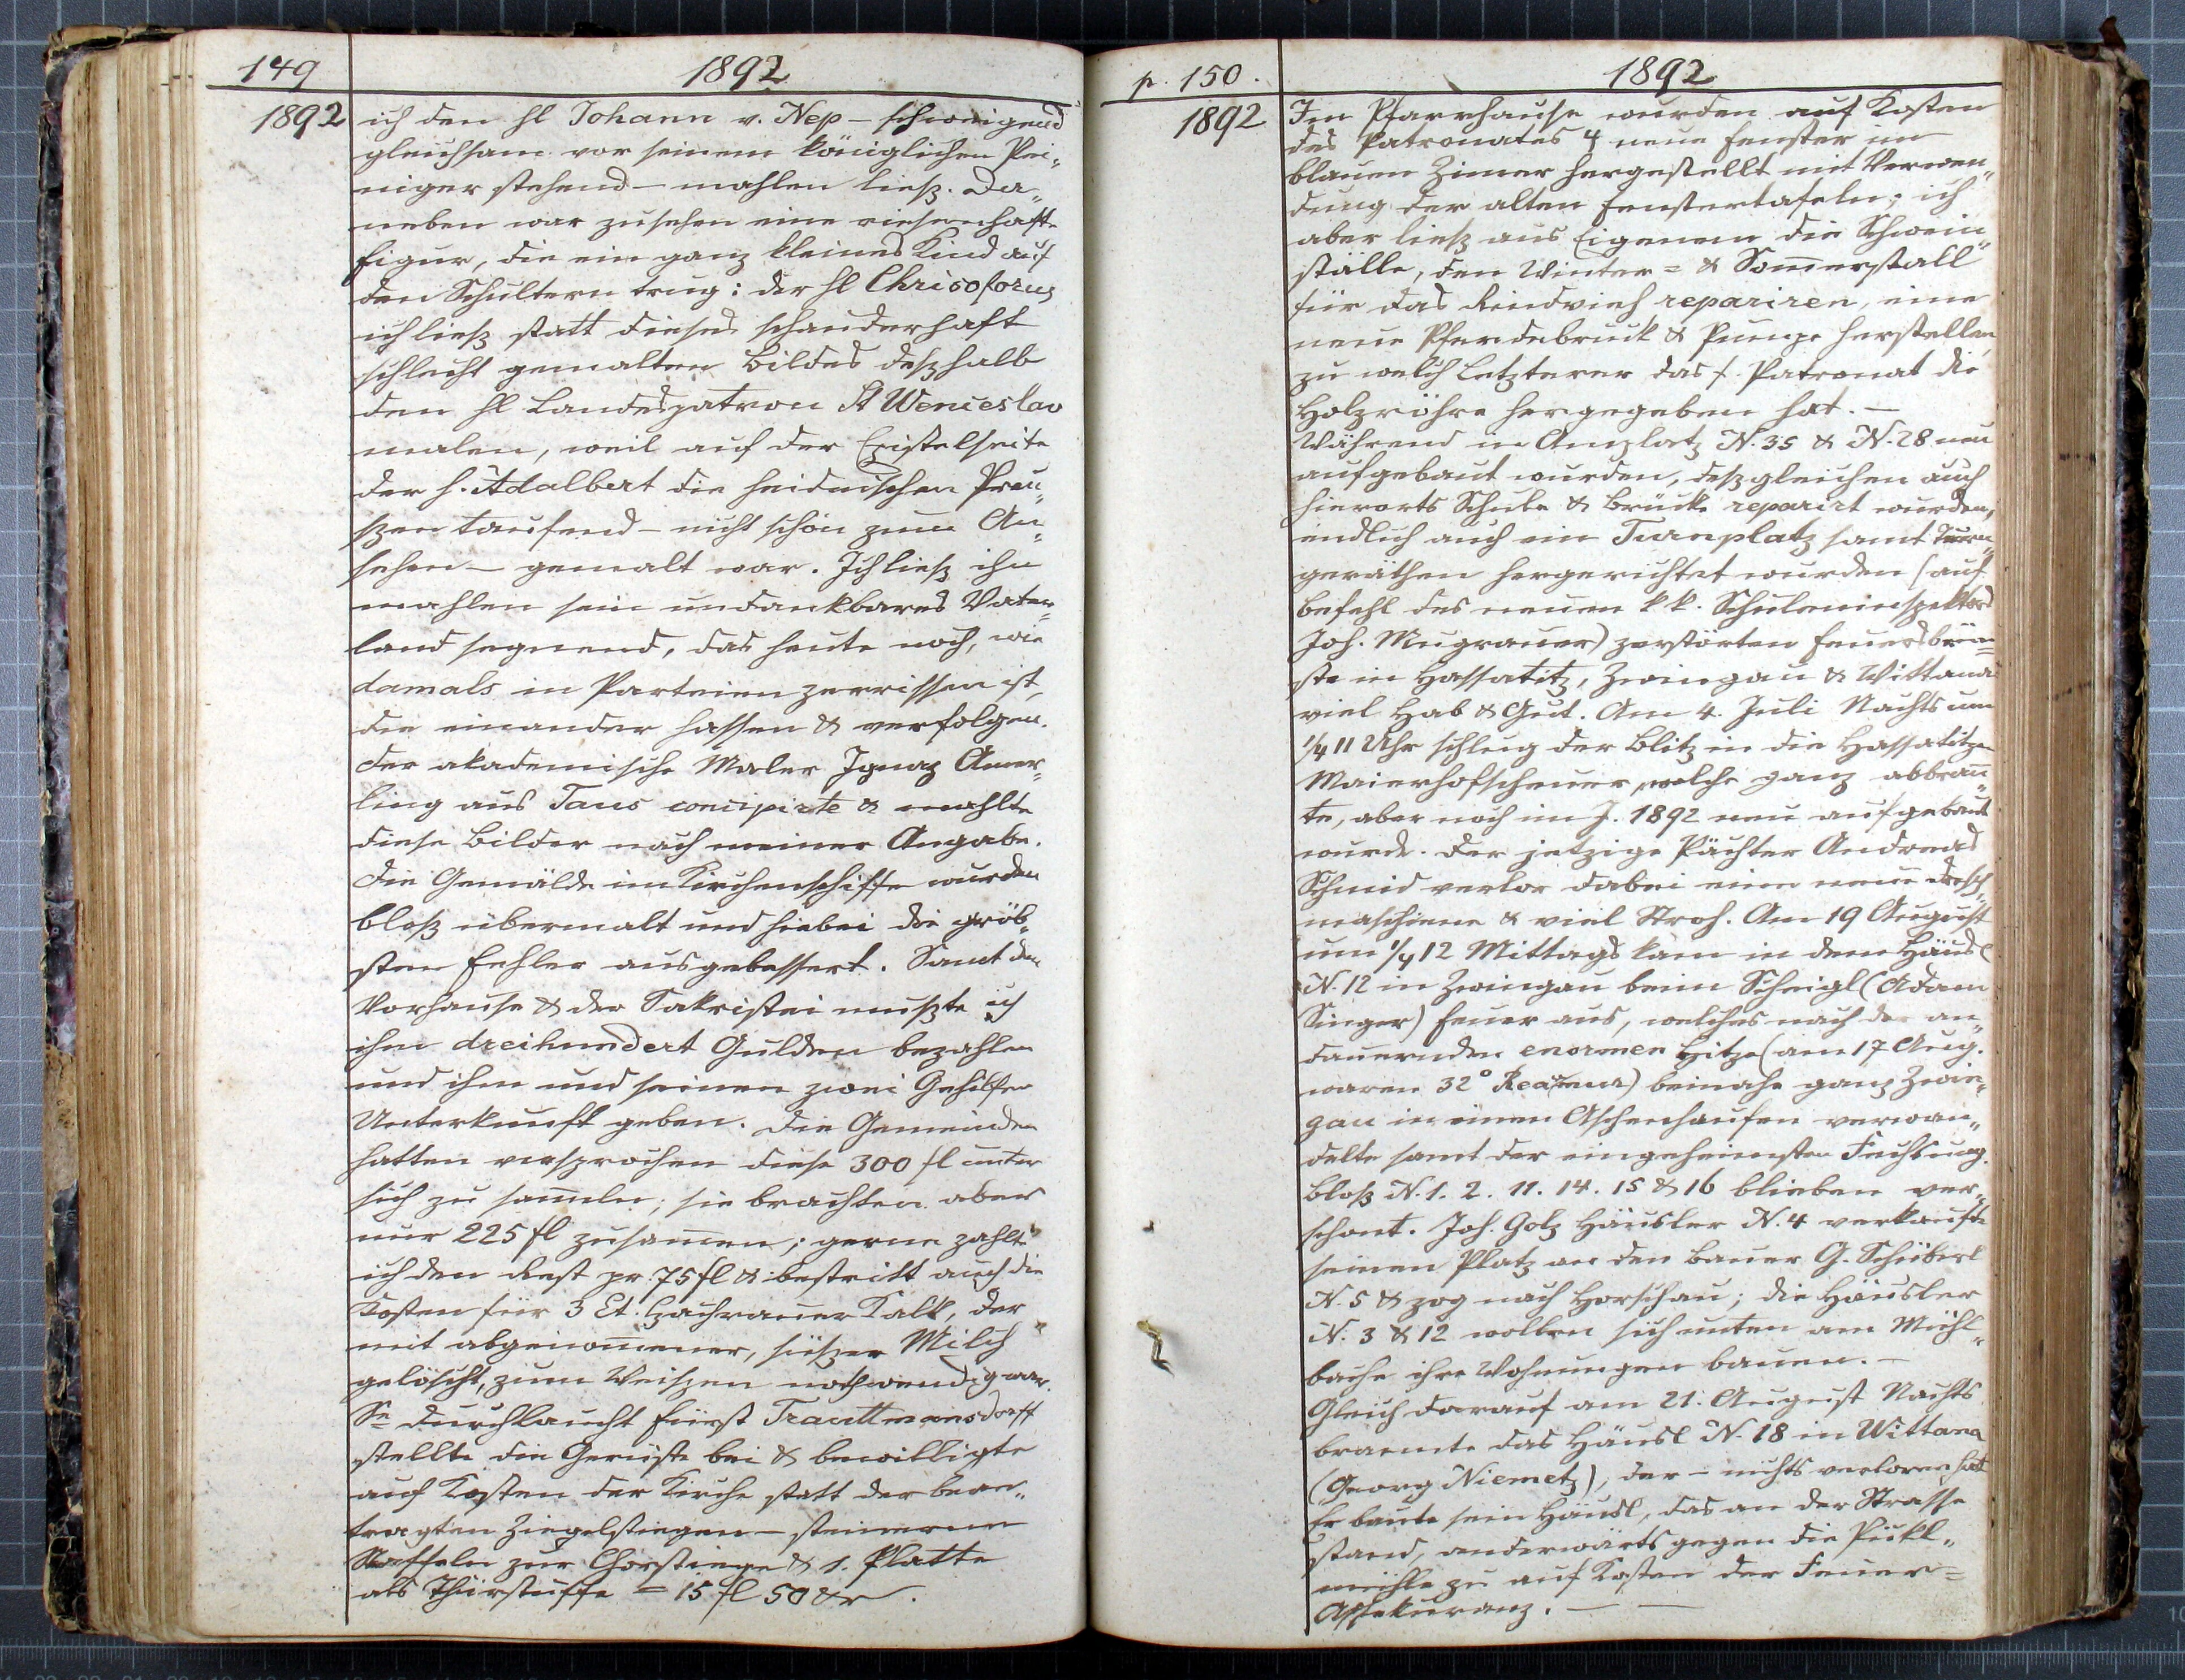 149
1892
1892
ich den hl Johann v. Nep – schweigend
gleichsam vor seinem königlichen Pei„
niger stehend – mahlen ließ. Da„
neben war zusehen eine riesenhafte
Figur, die ein ganz kleines Kind auf
den Schultern trug: der hl Chrisoforus
ich ließ statt dieses schauderhaft
schlecht gemalten Bildes deßhalb
den hl Landespatron St Wenceslav
malen, weil auf der Epistelseite
der h. Adalbert die heidnischen Preu„
ßen taufend – nicht schön zum An„
sehen – gemalt war. Ich ließ ihn
mahlen sein undankbares Vater„
land segnend, das heute noch, wie
damals in Parteien zerrissen ist,
die einander hassen & verfolgen.
Der akademische Maler Ignaz Amer„
ling aus Taus concipirte & mahlte
diese Bilder nach meiner Angabe.
Die Gemälde im Kirchenschiffe wurden
bloß übermalt und hiebei die gröb„
sten Fehler ausgebessert. Samt dem
Vorhause & der Sakristei mußte ich
ihm dreihundert Gulden bezahlen
und ihm und seinen zwei Gehilfen
Unterkunft geben. Die Gemeinden
hatten versprochen diese 300 fl unter
sich zu sam̄eln; sie brachten aber
nur 225 fl zusam̄en; gerne zahlte
ich den Rest pr. 75 fl & bestritt auch die
Kosten für 3 Ct. Kalk, der
mit abgenom̄ener, süßer Milch
gelöscht, zum Weißen nothwendig war.
Se Durchlaucht Fürst Trauttmansdorff
stellte die Gerüste bei & bewilligte
auf Kosten der Kirche statt der bean„
tragten Ziegelstiegen – steinerne
Staffeln zur Chorstiege & 1. Platte
als Thürstuffe = 15 fl 50 kr.
p. 150.
1892
1892
Im Pfarrhause wurden auf Kosten
des Patronates 4 neue Fenster im
blauen Zimer hergestellt mit Verwen„
dung der alten Fenstertafeln; ich
aber ließ aus Eigenem die Schwein„
ställe, den Winter= & Som̄erstall
für das Rindvieh repariren, eine
neue Pferdebruck & Pumpe herstellen,
zu welch Letzterer das f. Patronat die
Holzröhre hergegeben hat. –
Während in Amplatz N. 35 & N. 28 neu
aufgebaut wurden, deßgleichen auch
hierorts Schule & Brücke reparirt wurden,
endlich auch ein Turnplatz samt Turn„
geräthen hergerichtet wurden (auf
Befehl des neuen k k. Schuleninspektors
Joh. Mugrauer) zerstörten Feuersbrün„
ste in Hassatitz, Zwingau & Wittana
viel Hab & Gut. Am 4. Juli Nachts um
1/4 11 Uhr schlug der Blitz in die Hassatitzer
Maierhofscheuer, welche ganz abbran̄„
te, aber noch im J. 1892 neu aufgebaut
wurde. Der jetzige Pächter Andreas
Schmid verlor dabei eine neue Dresch„
maschiene & viel Stroh. Am 19 August
um 1/4 12 Mittags kam in dem Häusl
N. 12 in Zwingau beim Scheigl (Adam
Singer) Feuer aus, welches nach der an„
dauernden enormen Hitze (am 17 Aug.
waren 32° Reaumur) beinahe ganz Zwin„
gau in einen Aschenhaufen verwan„
delte samt der eingeheimsten Fechsung.
Bloß N. 1. 2. 11. 14. 15 & 16 blieben ver„
schont. Joh. Golz Häusler N. 4 verkaufte
seinen Platz an den Bauer G. Schübert
N. 5 & zog nach Horschau; die Häusler
N. 3 & 12 wollen sich unten am Mühl„
bache ihre Wohnungen bauen. –
Gleich darauf am 21. August Nachts
brannte das Häusl N. 18 in Wittana
(Georg Niemetz), der – nichts verloren hat
Er baute sein Häusl, das an der Strasse
stand, anderwärts gegen die Pückl„
mühle zu auf Kosten der Feuer=
Assekuranz. – –